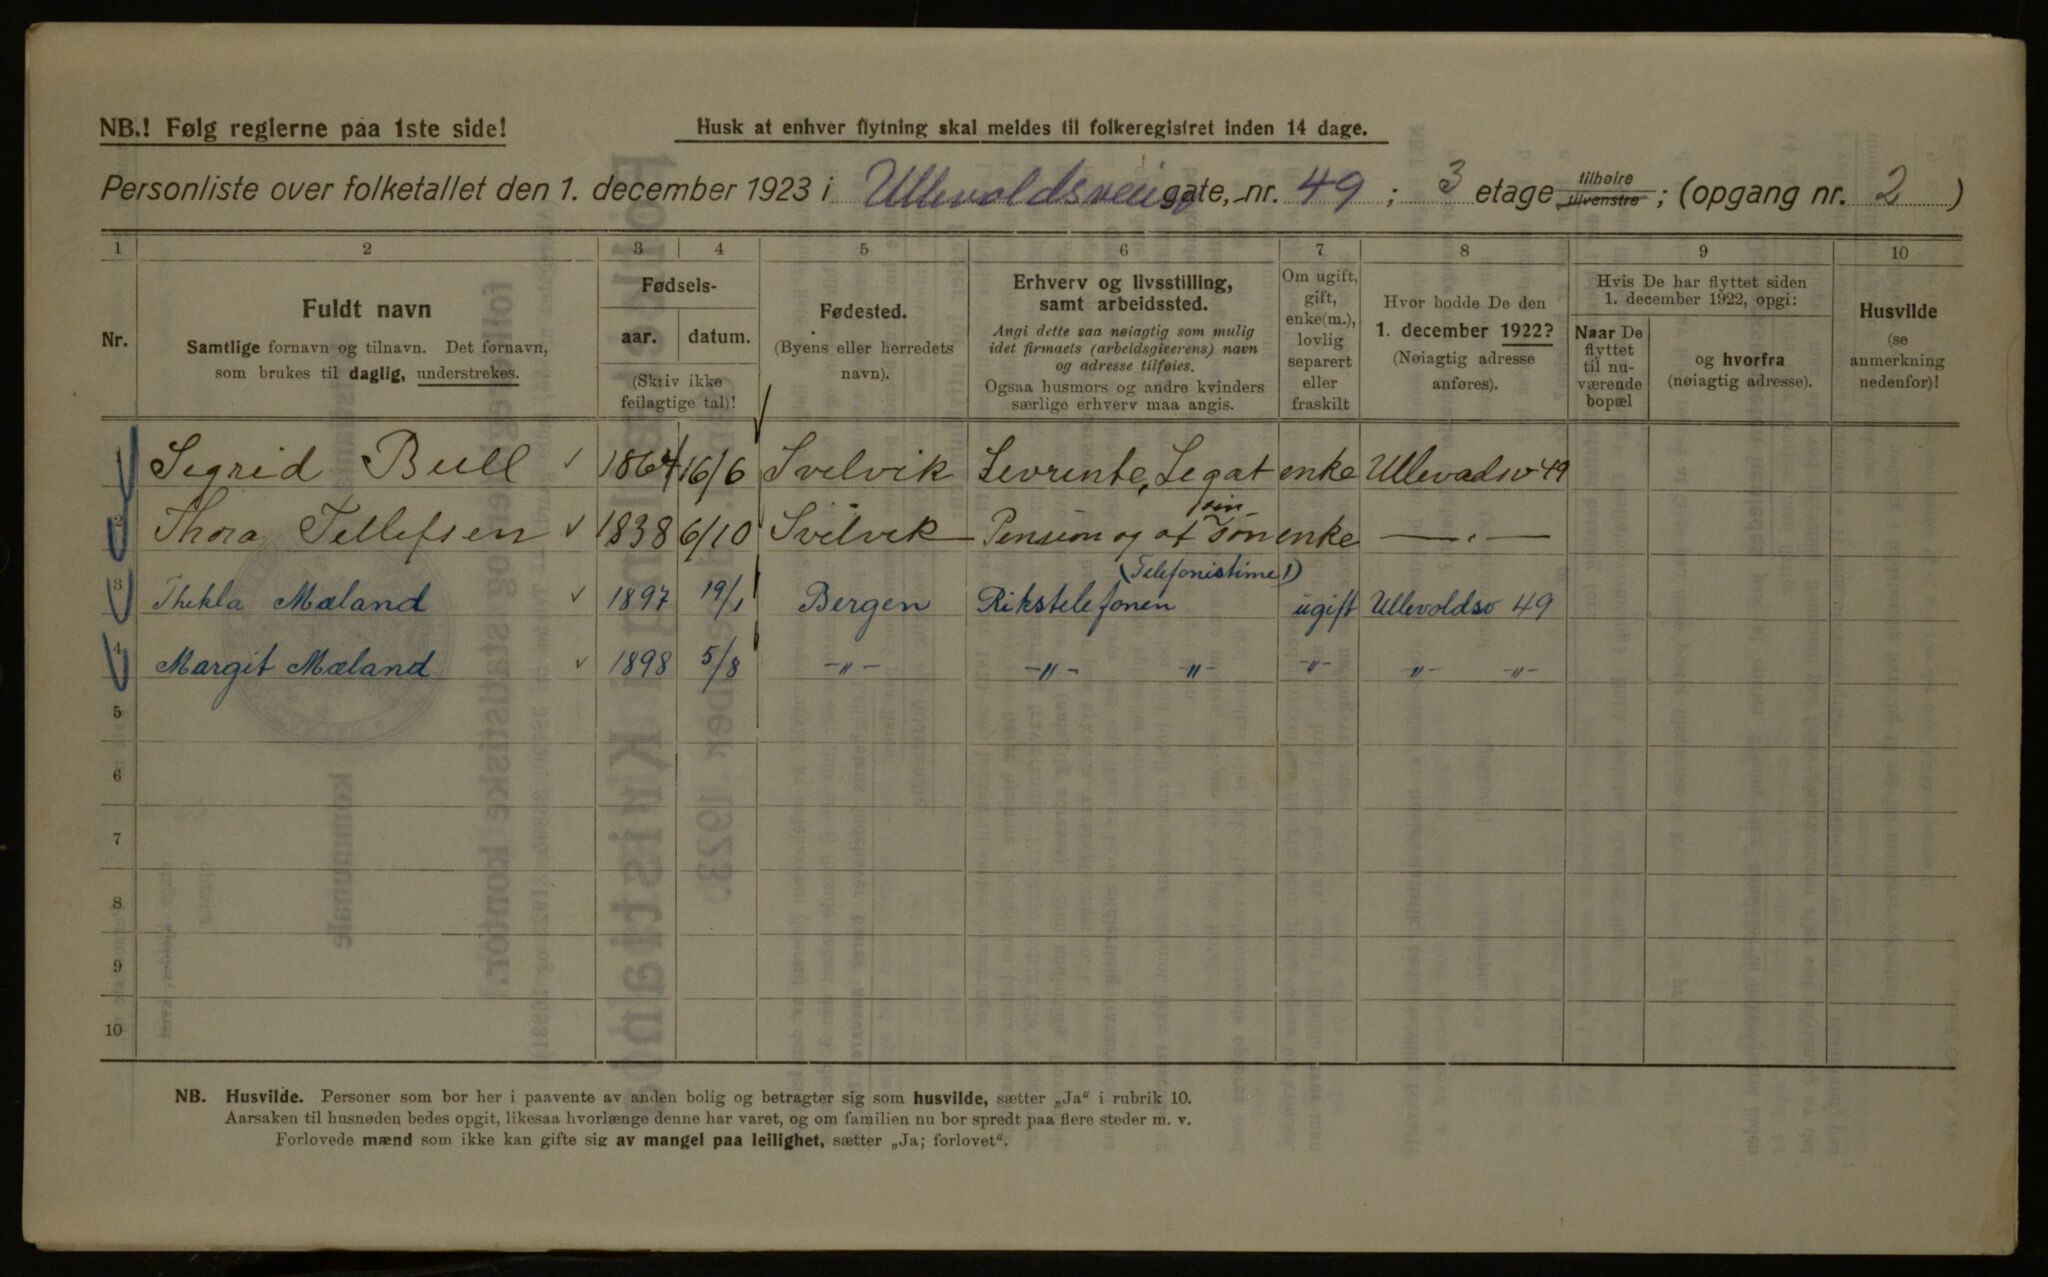 NB.! Følg reglerne paa 1ste side!
Husk at enhver flytning skal meldes til folkeregistret inden 14 dage.
Personliste over folketallet den 1. december 1923 i Ullevoldsveien gate, nr. 49 ; 3 etage tilhøire tilvenstre ; (opgang nr. 2 )
1 2 3 4 5 6 7 8 9 10
Nr.
Fuldt navn
Samtlige fornavn og tilnavn. Det fornavn,
som brukes til daglig, understrekes.
Fødsels-
aar. datum.
(Skriv ikke
feilagtige tal)!
Fødested.
(Byens eller herredets
navn).
Erhverv og livsstilling,
samt arbeidssted.
Angi dette saa nøiagtig som mulig
idet firmaets (arbeidsgiverens) navn
og adresse tilføies.
Ogsaa husmors og andre kvinders
særlige erhverv maa angis.
Om ugift,
gift,
enke(m.),
lovlig
separert
eller
fraskilt
Hvor bodde De den
1. december 1922?
(Nøiagtig adresse
anføres).
Hvis De har flyttet siden
1. december 1922, opgi:
Naar De
flyttet
til nu-
værende
bopæl
og hvorfra
(nøiagtig adresse).
Husvilde
(se
anmerkning
nedenfor)!
1 Sigrid Bull ✓ 1864 16/6 Svelvik Livrente, Legat enke Ullevadsv 49
2 Thora Tellefsen ✓ 1838 6/10 Svelvik Pension og af sin Søn enke — . —
3 Thekla Mæland ✓ 1897 19/1 Bergen Rikstelefonen (Telefonistinne!) ugift Ullevoldsv 49
4 Margit Mæland ✓ 1898 5/8 -"- -"- -"- -"- -"- -"-
5
6
7
8
9
10
NB. Husvilde. Personer som bor her i paavente av anden bolig og betragter sig som husvilde, sætter „Ja" i rubrik 10.
Aarsaken til husnøden bedes opgit, likesaa hvorlænge denne har varet, og om familien nu bor spredt paa flere steder m. v.
Forlovede mænd som ikke kan gifte sig av mangel paa leilighet, sætter „Ja; forlovet".